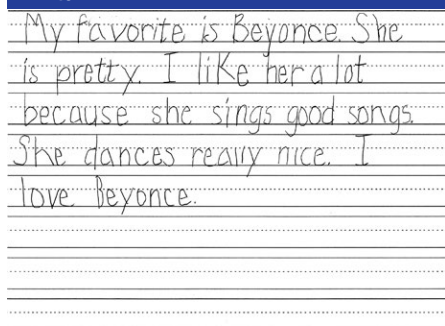 My favorite is Beyonce. She
is pretty. I like her a lot
because she sings good songs.
She dances really nice. I
love Beyonce.